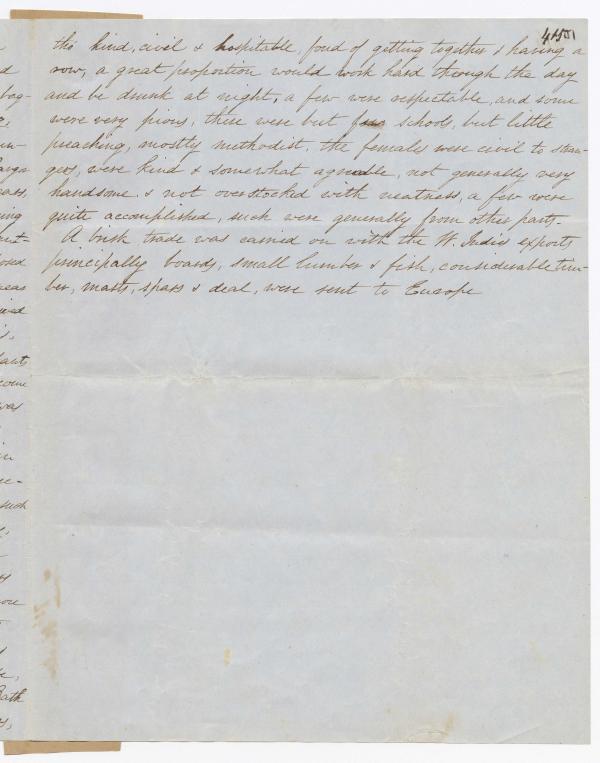 4451
tho kind, civil & hospitable, fond of getting together & having a
row, a great proportion would work hard through the day
and be drunk at night, a few were respectable, and some
were very pious, there were but few schools, but little
preaching, mostly methodist, the females were civil to stran-
gers, were kind & somewhat agreeable, not generally very
handsome & not overstocked with neatness, a few were
quite accomplished, such were generally from other parts.
A brisk trade was carried on with the W. Indies exports
principally boards, small lumber & fish, considerable tim-
ber, masts, spars & deal, were sent to Europe
come
was
such
Bath